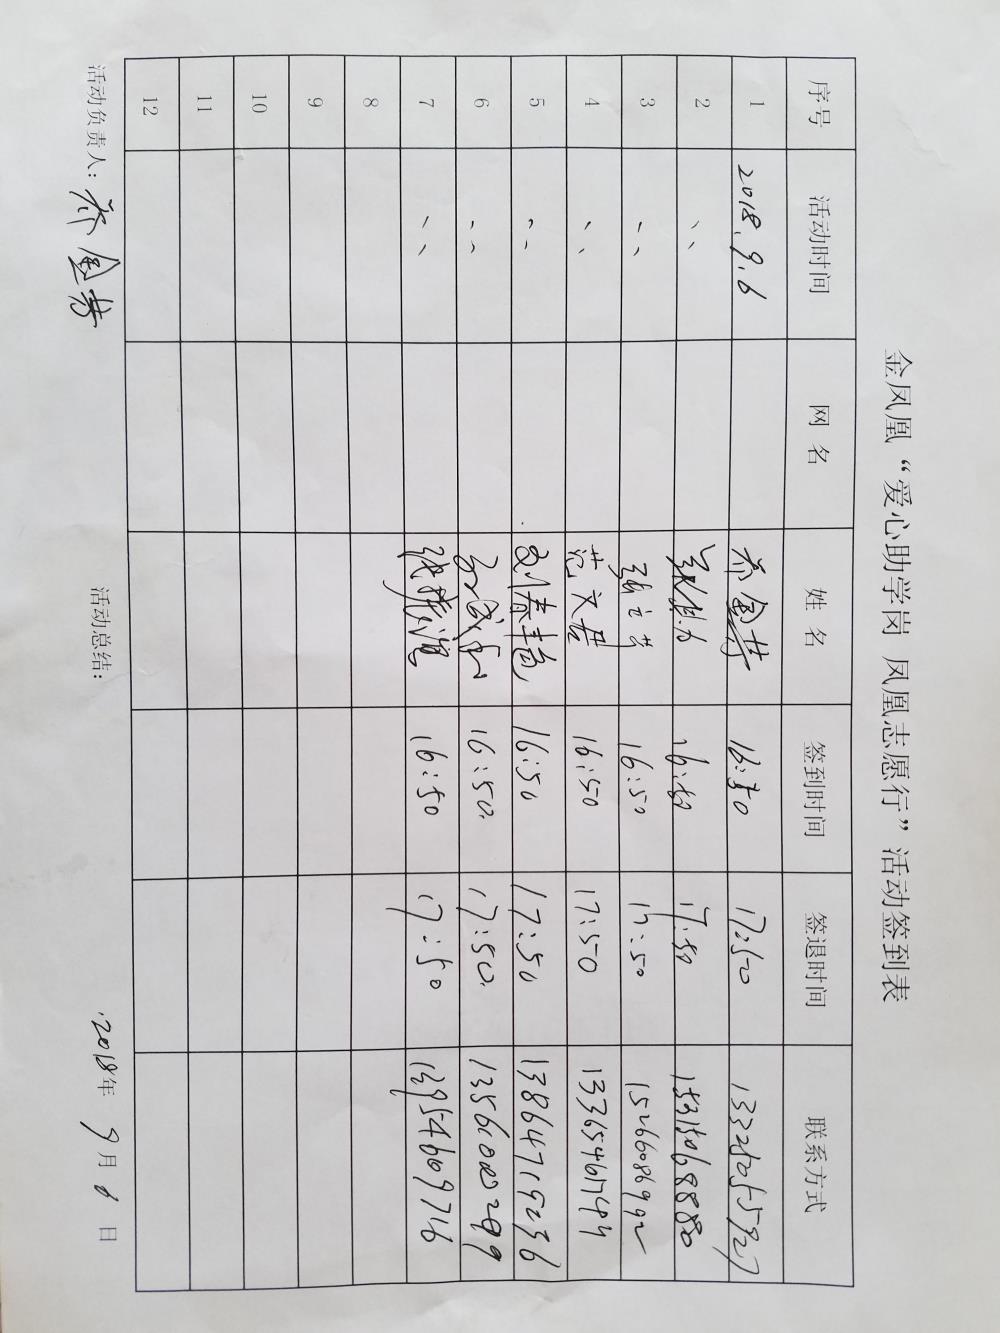 金凤凰“爱心助学岗 凤凰志愿行”活动签到表
序号 活动时间 网 名 姓 名 签到时间 签退时间 联系方式
1 2018.9.6 乔金芳 16:50 17:50
2 、、 16:50 17:50 15315068880
3 、、 16:50 17:50 15266086992
4 、、 范文君 16:50 17:50 13365467499
5 、、 刘春艳 16:50 17:50 13864715236
6 、、 16:50. 17:50.
7 、、 16:50 17:50 13954609716
8
9
10
11
12
活动负责人: 乔金芳 活动总结: 2018年 9月 6日